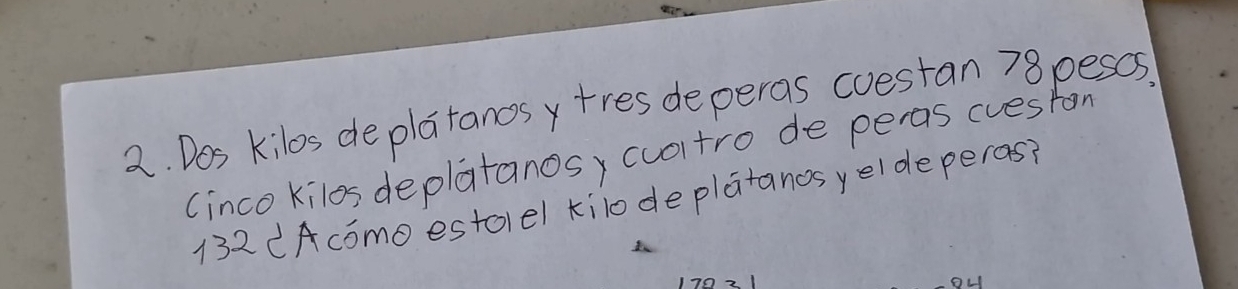 2. Dos kilos de plátanos y tres de peras cuestan 78 pesos.
Cinco kilos de plátanos y cuatro de peras cuestan
132 ¿A cómo esta el kilo de plátanos y el de peras?
-84